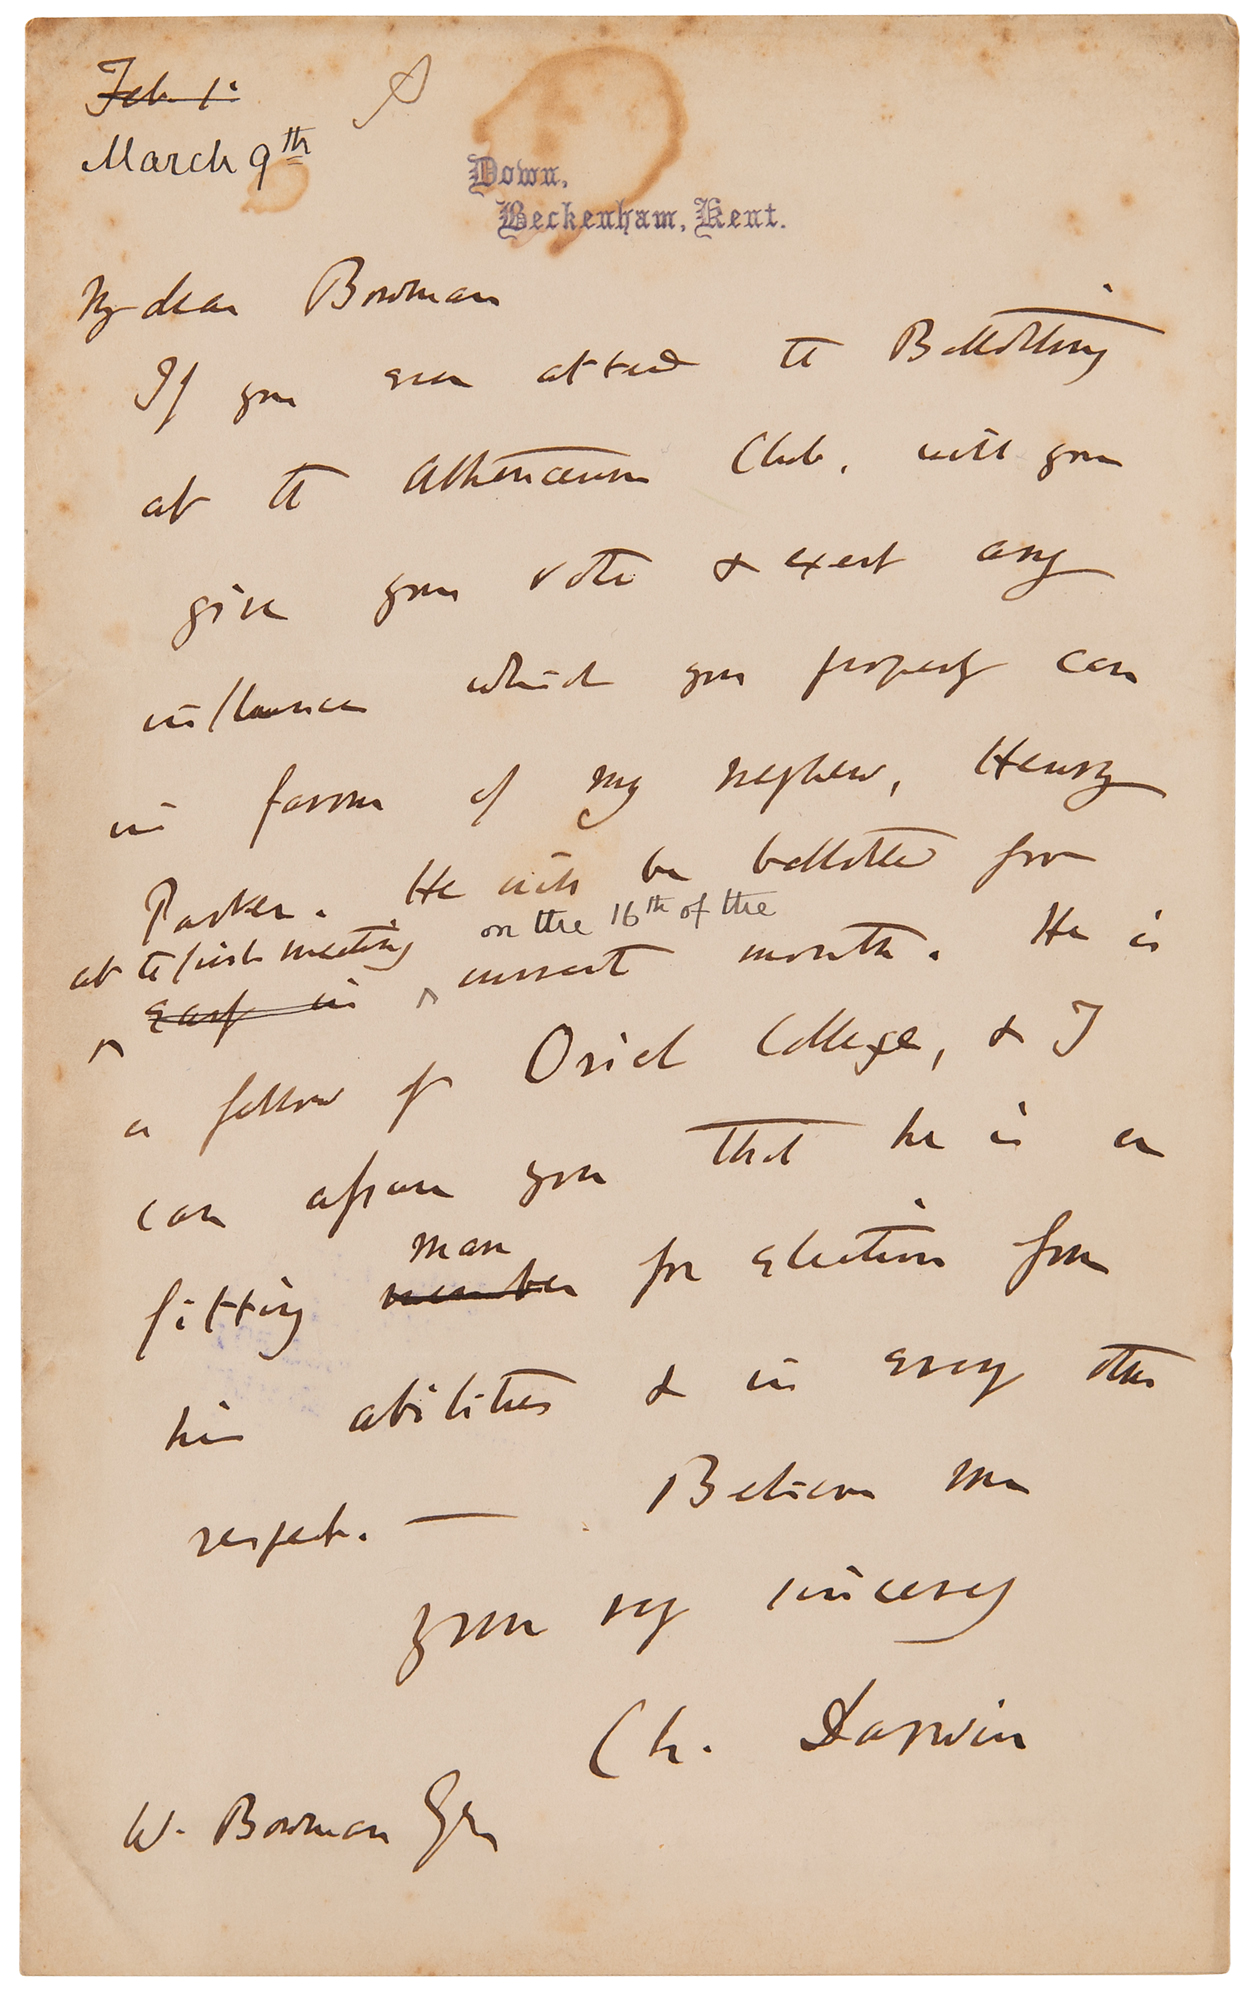 Feb. 1.
March 9th
Down,
Beckenham, Kent.
My dear Bowman
If you ever attend the Ballotting
at the Athenaeum Club, will you
give your vote & exert any
influence which you properly can
in favour of my nephew, Henry
Parker. He will be ballotted for
at the first meeting on the 16th of the
early in current month. He is
a fellow of Oriel College, & I
can assure you that he is a
man
fitting member for election from
his abilities & in every other
respect. — Believe me
yours very sincerely
Ch. Darwin
W. Bowman Esq